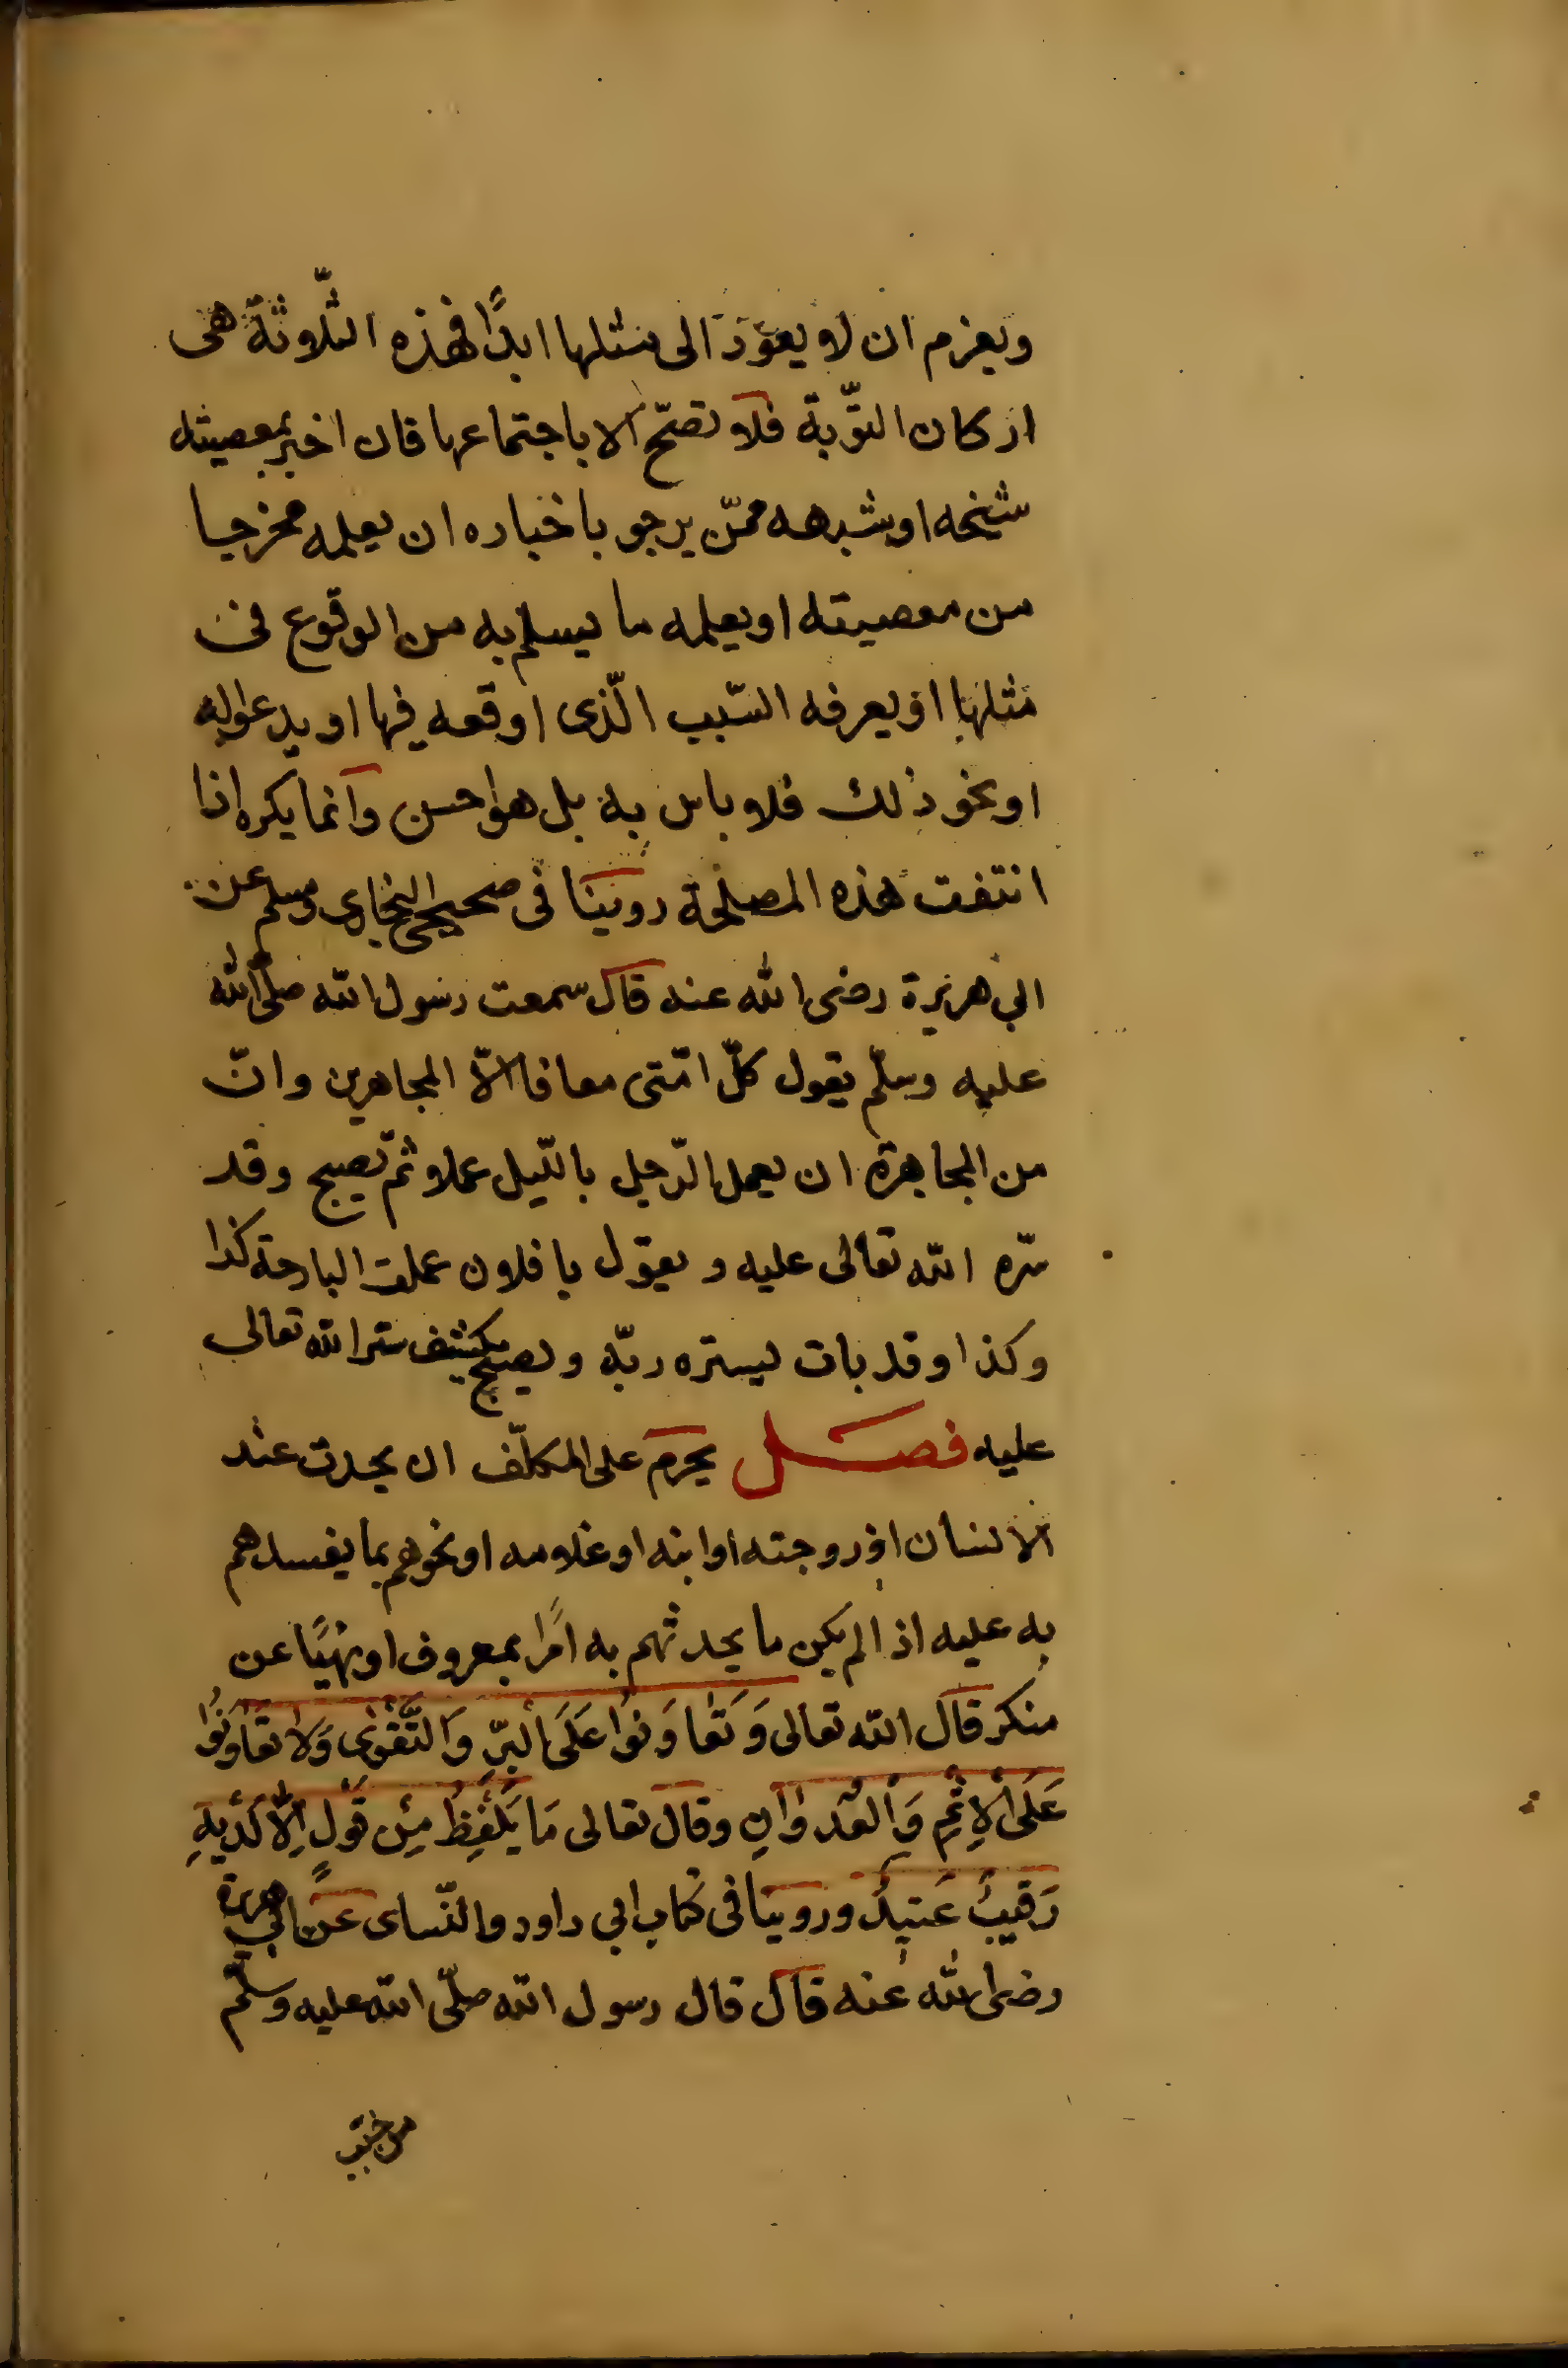 ويعزم ان لا يعوْدَ الى مثلها ابدًا فهذه الثّلاثة هى
اركان التوّبة فلا تصحّ الا باجتماعها فان اخبر بمعصيته
شيخه او شبهه ممّن يرجو باخباره ان يعلمه مخرجا
من معصيته او يعلمه ما يسلم به من الوقوع فى
مثلها او يعرفه السّبب الّذى اوقعه فيها او يدعو له
او نحو ذلك فلا باس به بل هو احسن وانما يكره اذا
انتفت هذه المصلحة روينا فى صحيحى البخارى ومسلم عن
ابى هريرة رضى الله عنه قال سمعت رسول الله صلّى الله
عليه وسلّم يقول كلّ امّتى معافا الاّ المجاهرين وانّ
من المجاهرة ان يعمل الرّجل باللّيل عملا ثمّ يصبح وقد
سّره الله تعالى عليه ويقول يا فلان عملت البارحة كذا
وكذا وقد بات يستره ربّه ويصبح يكشف ستر الله تعالى
عليه فصل يحرم على المكلّف ان يحدث عند
الانسان او زوجته او ابنه او غلامه او نحوهم بما يفسدهم
به عليه اذا لم يكن ما يحدثهم به امًرا بمعروف او نهيًا عن
منكر قال الله تعالى وَتَعَاوَنُوا عَلَى الْبِرِّ وَالتَّقْوٰى وَلَا تَعَاوَنُوا
عَلَى الْاِثْمِ وَالْعُدْوَانِ وقال تعالى مَا يَلْفِظُ مِنْ قَوْلٍ اِلَّا لَدَيْهِ
رَقِيبٌ عَتِيدٌ وروينا فى كتاب ابى داود والنّساى عن ابى هريرة
رضى الله عنه قال قال رسول الله صلّى الله عليه وسلّم
من خبب